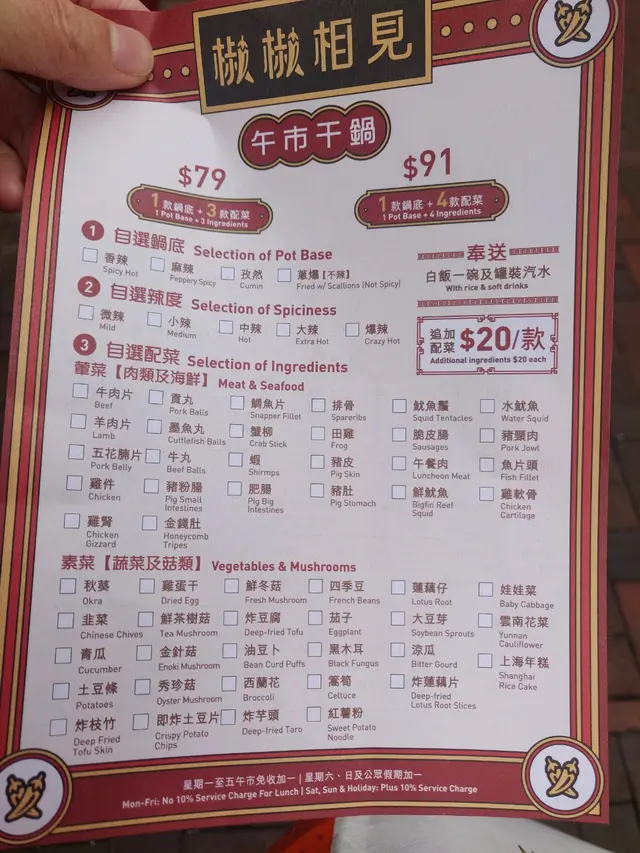 椒椒相見
午市干鍋
$79
1款鍋底+3款配菜
1 Pot Base + 3 Ingredients
$91
1款鍋底+4款配菜
1 Pot Base + 4 Ingredients
1 自選鍋底 Selection of Pot Base
香辣 麻辣 孜然 蔥爆【不辣】
Spicy Hot Peppery Spicy Cumin Fried w/ Scallions (Not Spicy)
奉送
白飯一碗及罐裝汽水
With rice & soft drinks
2 自選辣度 Selection of Spiciness
微辣 小辣 中辣 大辣 爆辣
Mild Medium Hot Extra Hot Crazy Hot
追加配菜 $20/款
Additional ingredients $20 each
3 自選配菜 Selection of Ingredients
葷菜【肉類及海鮮】 Meat & Seafood
牛肉片 貢丸 鯛魚片 排骨 魷魚鬚 水魷魚
Beef Pork Balls Snapper Fillet Spareribs Squid Tentacles Water Squid
羊肉片 墨魚丸 蟹柳 田雞 脆皮腸 豬頸肉
Lamb Cuttlefish Balls Crab Stick Frog Sausages Pork Jowl
五花腩片 牛丸 蝦 豬皮 午餐肉 魚片頭
Pork Belly Beef Balls Shirmps Pig Skin Luncheon Meat Fish Fillet
雞件 豬粉腸 肥腸 豬肚 鮮魷魚 雞軟骨
Chicken Pig Small Intestines Pig Big Intestines Pig Stomach Bigfin Reef Squid Chicken Cartilage
雞腎 金錢肚
Chicken Gizzard Honeycomb Tripes
素菜【蔬菜及菇類】 Vegetables & Mushrooms
秋葵 雞蛋干 鮮冬菇 四季豆 蓮藕仔 娃娃菜
Okra Dried Egg Fresh Mushroom French Beans Lotus Root Baby Cabbage
韭菜 鮮茶樹菇 炸豆腐 茄子 大豆芽 雲南花菜
Chinese Chives Tea Mushroom Deep-fried Tofu Eggplant Soybean Sprouts Yunnan Cauliflower
青瓜 金針菇 油豆卜 黑木耳 涼瓜 上海年糕
Cucumber Enoki Mushroom Bean Curd Puffs Black Fungus Bitter Gourd Shanghai Rice Cake
土豆條 秀珍菇 西蘭花 萵筍 炸蓮藕片
Potatoes Oyster Mushroom Broccoli Celtuce Deep-fried Lotus Root Slices
炸枝竹 即炸土豆片 炸芋頭 紅薯粉
Deep Fried Tofu Skin Crispy Potato Chips Deep-fried Taro Sweet Potato Noodle
星期一至五午市免收加一 | 星期六、日及公眾假期加一
Mon-Fri: No 10% Service Charge For Lunch | Sat, Sun & Holiday: Plus 10% Service Charge